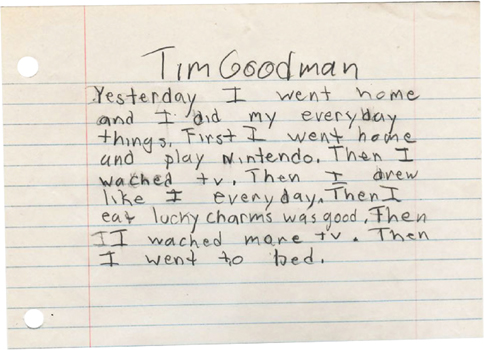 Tim Goodman
Yesterday I went home
and I did my everyday
things. First I went home
and play Nintendo. Then I
wached tv. Then I drew
like I everyday. Then I
eat lucky charms was good. Then
II wached more tv. Then
I went to bed.